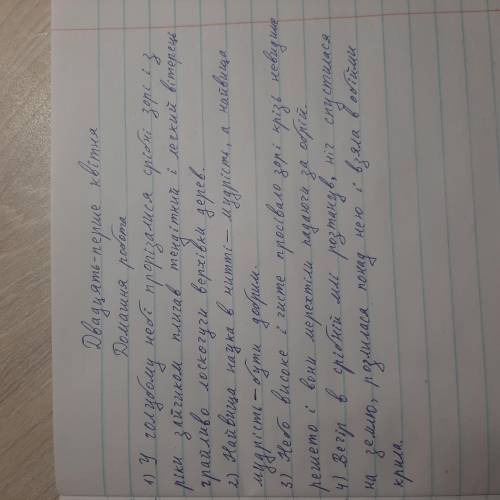 Двадцять-перше квітня
Домашня робота
1) У голубому небі прорізалися срібні зорі і з
ріки зайчиком плигав тендітний і легкий вітерець
грайливо лоскочучи верхівки дерев.
2) Найвища наука в житті - мудрість, а найвища
мудрість - бути добрим.
3) Небо високе і чисте просівало зорі крізь невидиме
решето і вони мерехтіли падаючи за обрій.
4) Вечір в срібній млі розтанув, ніч спустилася
на землю, розлилася понад нею і взяла в обійми
крила.